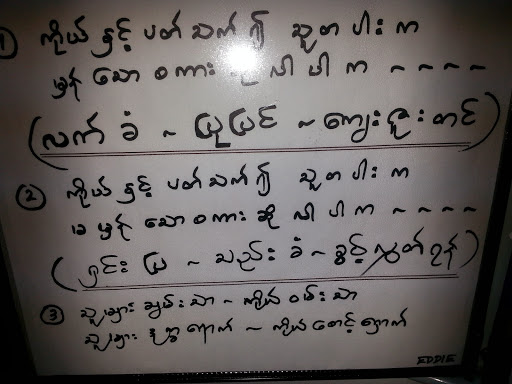 ① ကိုယ် နှင့် ပတ် သက် ၍ သူ တ ပါး က
မှန် သော စ ကား ဆို လာ ပါ က ~ ~ ~ ~
(လက် ခံ ~ ပြု ပြင် ~ ကျေး ဇူး တင်)
② ကိုယ် နှင့် ပတ် သက် ၍ သူ တ ပါး က
မ မှန် သော စ ကား ဆို လာ ပါ က ~ ~ ~ ~
(ရှင်း ပြ ~ သည်း ခံ ~ ခွင့် လွှတ်)
③ သူများ ချမ်း သာ ~ ကိုယ် ဝမ်း သာ
သူများ ဒုက္ခ ရောက် ~ ကိုယ် စောင့် ရှောက်
EDDIE